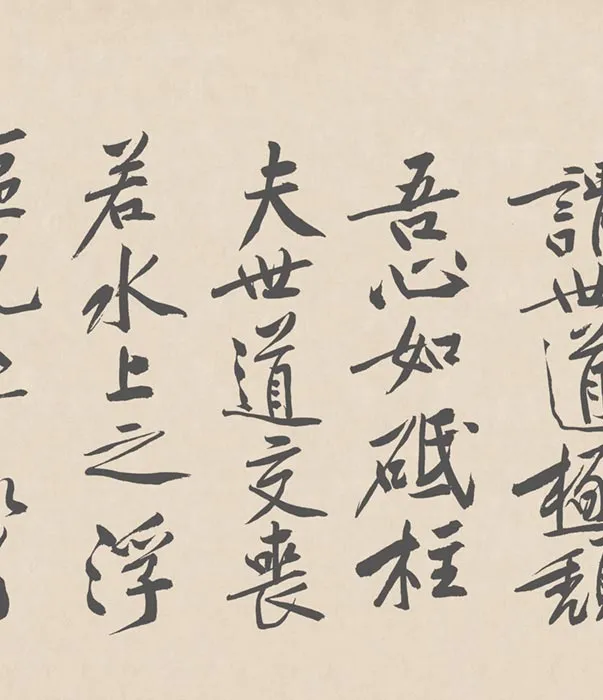 謂世道極頹
吾心如砥柱
夫世道交喪
若水上之浮